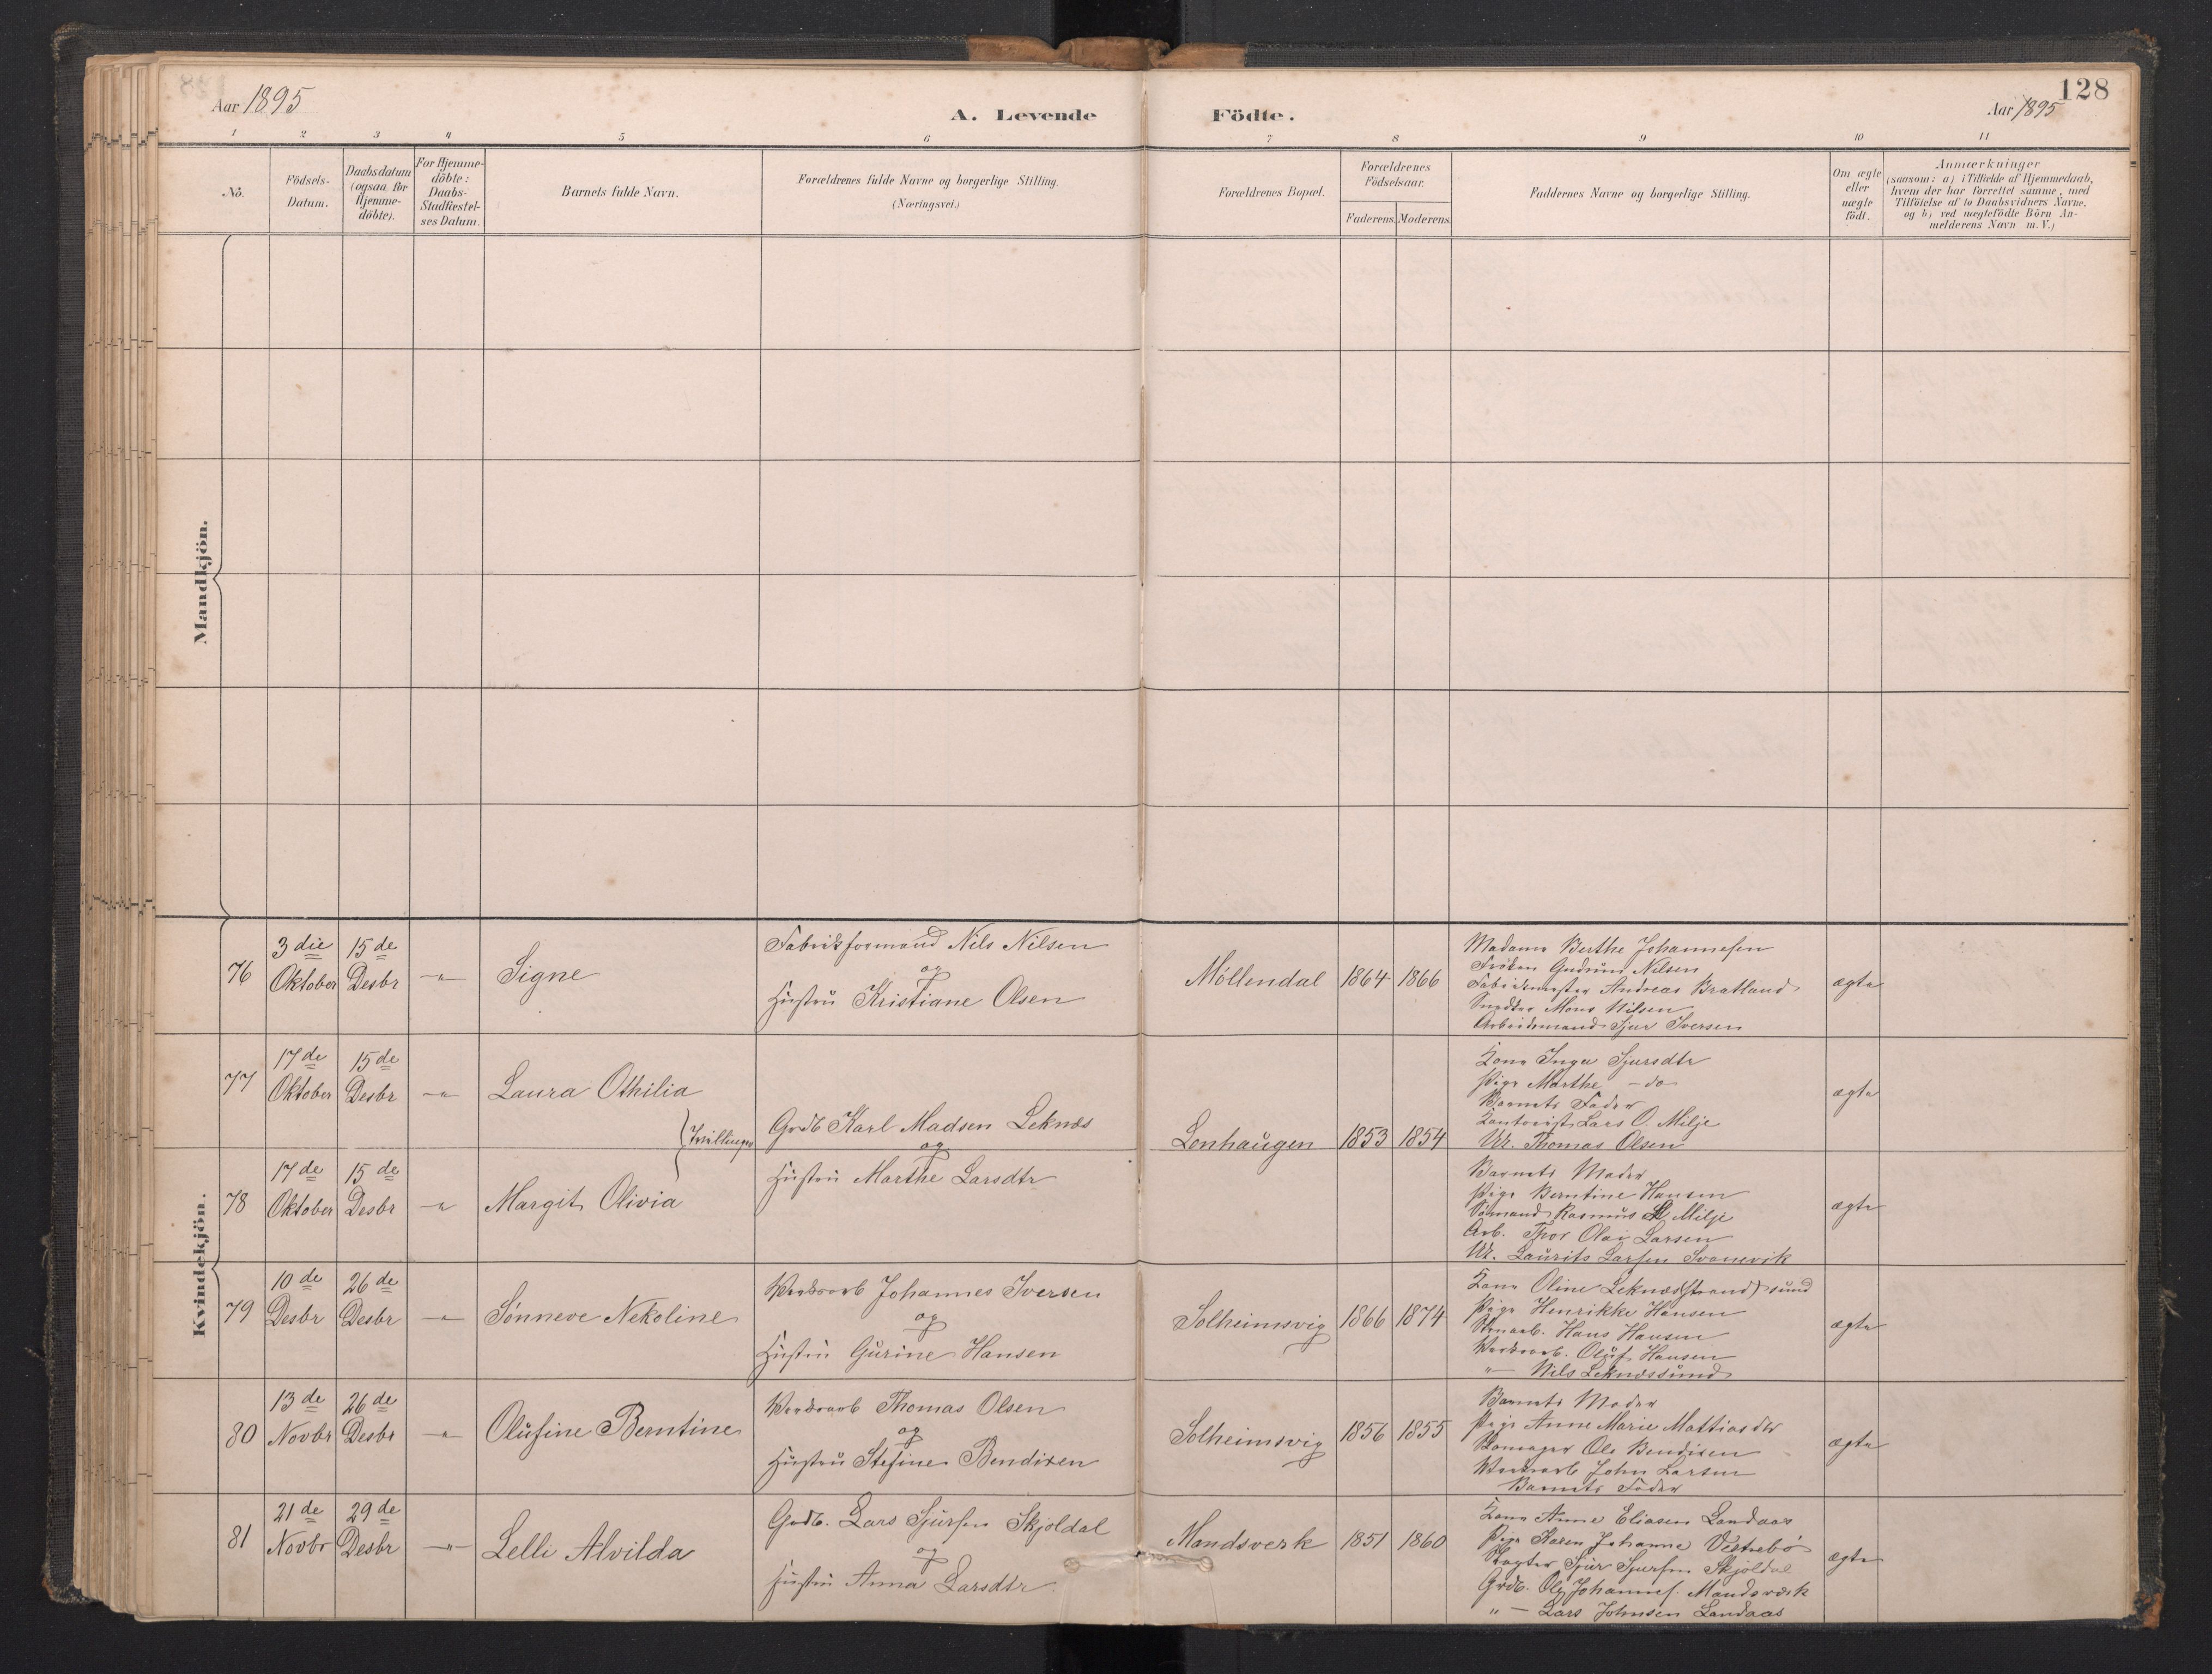 128
Aar 1895
A. Levende Födte.
Aar 1895
1 2 3 4 5 6 7 8 9 10 11
No.
Födsels-
Datum.
Daabsdatum
(ogsaa for
Hjemme-
döbte).
For Hjemme-
döbte:
Daabs-
Stadfæstel-
ses Datum.
Barnets fulde Navn.
Forældrenes fulde Navne og borgerlige Stilling.
(Næringsvei.)
Forældrenes Bopæl.
Forældrenes
Födselsaar.
Faderens. Moderens.
Faddernes Navne og borgerlige Stilling.
Om ægte
eller
uægte
födt.
Anmærkninger
(saasom: a) i Tilfælde af Hjemmedaab,
hvem der har forrettet samme, med
Tilföielse af to Daabsvidners Navne.
og b) ved uægtefödte Börn An-
melderens Navn m. V.)
Mandkjön.
Kvindekjön.
76
3die
Oktober
15de
Desbr
—"—
Signe
Fabrikformand Nils Nilsen
og
Hustru Kristiane Olsen
Møllendal
1864
1866
Madame Berthe Johannesen
Frøken Gudrun Nilsen
Fabrikmester Andreas Bratland
Mons Nilsen
Arbeidsmand Sjur Iversen
ægte
77
17de
Oktober
15de
Desbr
—"—
Laura Othilia
(Tvillinger
Grdb Karl Madsen Leknæs
og
Hustru Marthe Larsdtr
Lonhaugen
1853
1854
Kone Inga Sjursdtr
Pige Marthe — do
Barnets Fader
Kontorist Lars O. Milje
Ur. Thomas Olsen
ægte
78
17de
Oktober
15de
Desbr
—"—
Margit Olivia
Barnets Moder
Pige Berntine Hansen
Sømand Rasmus Milje
Arb. Thor Olai Larsen
Ur. Laurits Larsen Svanevik
ægte
79
10de
Desbr
26de
Desbr
—"—
Sønneve Nekoline
Værksarb Johannes Iversen
og
Hustru Gurine Hansen
Solheimsvig
1866
1874
Kone Oline Leknæs(strand)sund
Pige Henrikke Hansen
Stenarb. Hans Hansen
Værksarb. Oluf Hansen
"— Nils Leknæssund
ægte
80
13de
Novbr
26de
Desbr
—"—
Olufine Berntine
Værksarb Thomas Olsen
og
Hustru Stefine Bendixen
Solheimsvig
1856
1855
Barnets Moder
Pige Anne Marie Mattiasdtr
Ole Bendixen
Værksarb John Larsen
Barnets Fader
ægte
81
21de
Novbr
29de
Desbr
—"—
Lelli Alvilda
Grdb. Lars Sjursen Skjoldal
og
Hustru Anna Larsdtr
Mandsverk
1851
1860
Kone Anne Eliasen Landaas
Pige Karen Johanne Vestrebø
Slagter Sjur Sjursen Skjoldal
Grdb. Ole Johannes. Mandsværk
" — Lars Johnsen Landaas
ægte